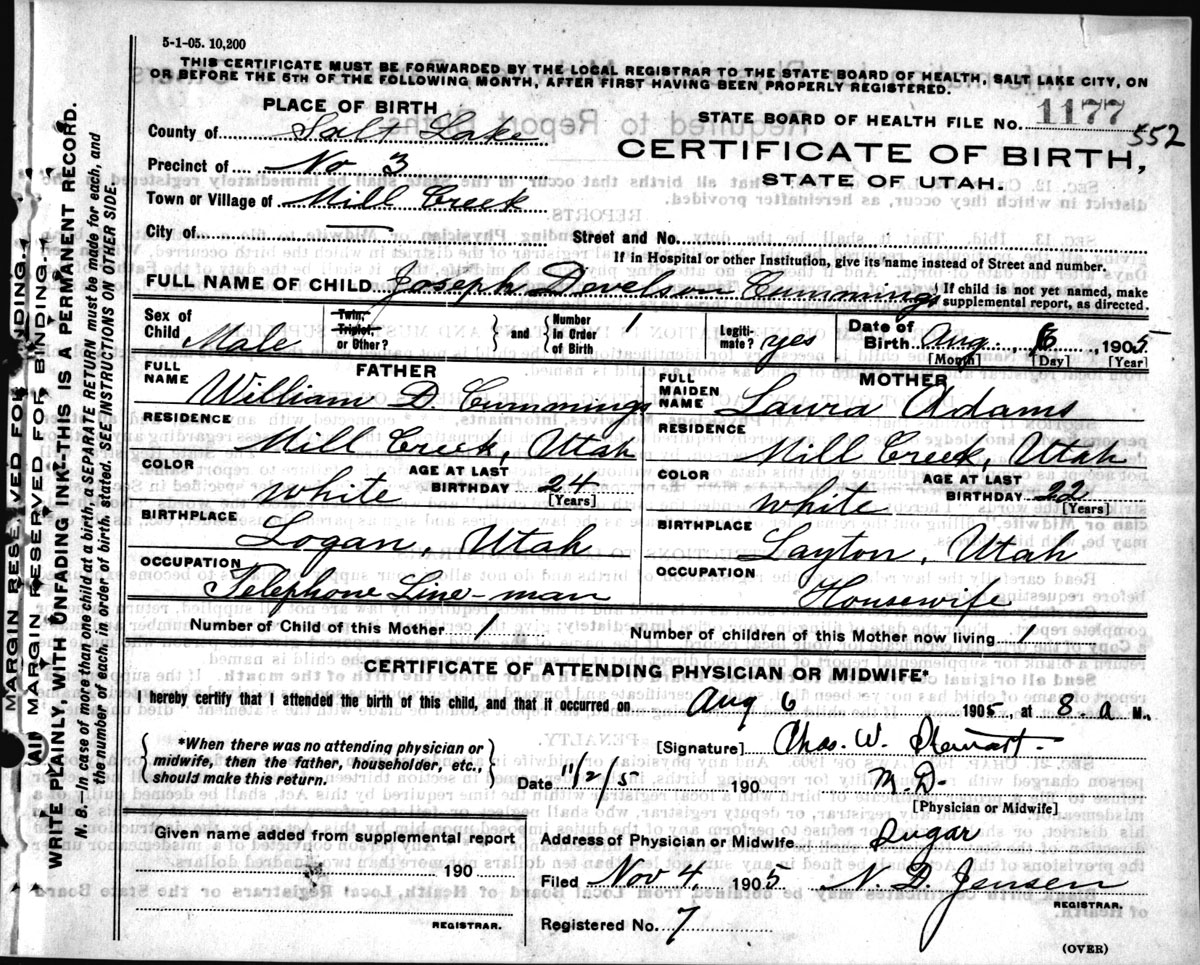 5-1-05. 10,200
THIS CERTIFICATE MUST BE FORWARDED BY THE LOCAL REGISTRAR TO THE STATE BOARD OF HEALTH, SALT LAKE CITY, ON
OR BEFORE THE 5TH OF THE FOLLOWING MONTH, AFTER FIRST HAVING BEEN PROPERLY REGISTERED.
PLACE OF BIRTH
STATE BOARD OF HEALTH FILE No. 1177
552
County of Salt Lake
CERTIFICATE OF BIRTH,
STATE OF UTAH.
Precinct of No 3
Town or Village of Mill Creek
City of —
Street and No.
If in Hospital or other Institution, give its name instead of Street and number.
FULL NAME OF CHILD Joseph Develson Cummings
If child is not yet named, make
supplemental report, as directed.
Sex of
Child Male
Twin,
Triplet,
or Other?
and
Number
in Order
of Birth 1
Legiti-
mate? yes
Date of
Birth Aug 6, 1905
[Month] [Day] [Year]
FATHER
FULL
NAME William D. Cummings
RESIDENCE
Mill Creek, Utah
COLOR
white
AGE AT LAST
BIRTHDAY 24
[Years]
BIRTHPLACE
Logan, Utah
OCCUPATION
Telephone Line-man
MOTHER
FULL
MAIDEN
NAME Laura Adams
RESIDENCE
Mill Creek, Utah
COLOR
white
AGE AT LAST
BIRTHDAY 22
[Years]
BIRTHPLACE
Layton, Utah
OCCUPATION
Housewife
Number of Child of this Mother 1
Number of children of this Mother now living 1
CERTIFICATE OF ATTENDING PHYSICIAN OR MIDWIFE*
I hereby certify that I attended the birth of this child, and that it occurred on Aug 6 1905, at 8. a M.,
*When there was no attending physician or
midwife, then the father, householder, etc.,
should make this return.
[Signature] Chas. W. Stewart.
Date 11/2/5 190
M.D.
[Physician or Midwife]
Given name added from supplemental report
190
REGISTRAR.
Address of Physician or Midwife Sugar
Filed Nov 4, 1905 N. D. Jensen
REGISTRAR.
Registered No. 7
(OVER)
MARGIN RESERVED FOR BINDING.
MARGIN RESERVED FOR BINDING.
WRITE PLAINLY, WITH UNFADING INK--THIS IS A PERMANENT RECORD.
N. B.—In case of more than one child at a birth, a SEPARATE RETURN must be made for each, and
the number of each, in order of birth, stated. (SEE INSTRUCTIONS ON OTHER SIDE.